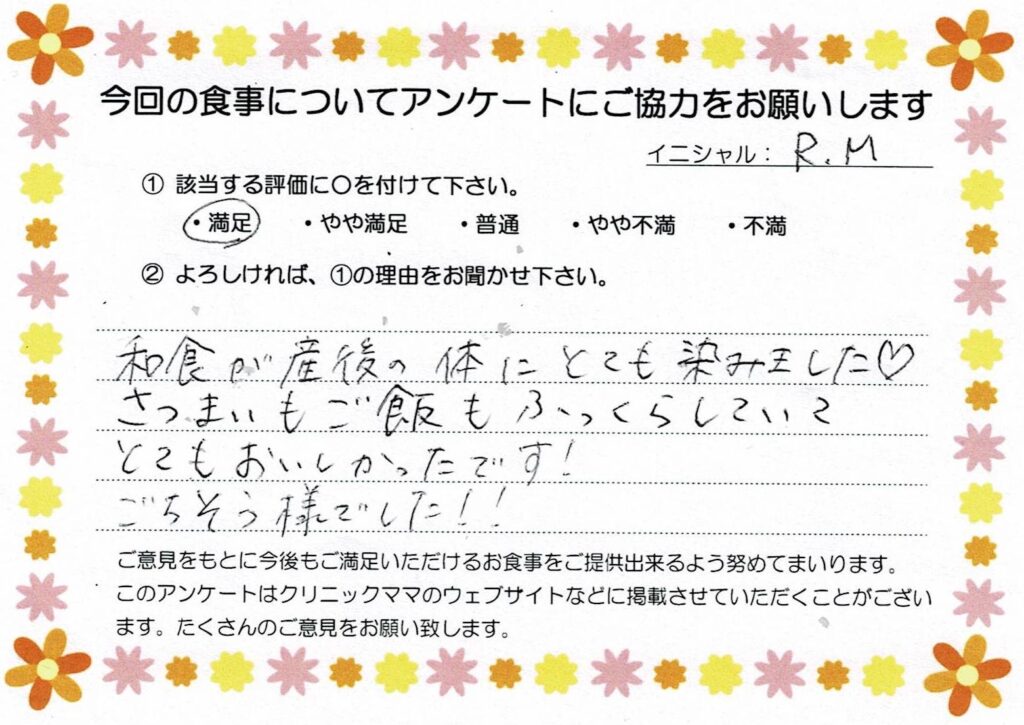 今回の食事についてアンケートにご協力をお願いします
イニシャル： R.M
① 該当する評価に〇を付けて下さい。
・満足 ・やや満足 ・普通 ・やや不満 ・不満
② よろしければ、①の理由をお聞かせ下さい。
和食が産後の体にとても染みました♡
さつまいもご飯もふっくらしていて
とてもおいしかったです！
ごちそう様でした！！
ご意見をもとに今後もご満足いただけるお食事をご提供出来るよう努めてまいります。
このアンケートはクリニックママのウェブサイトなどに掲載させていただくことがござい
ます。たくさんのご意見をお願い致します。